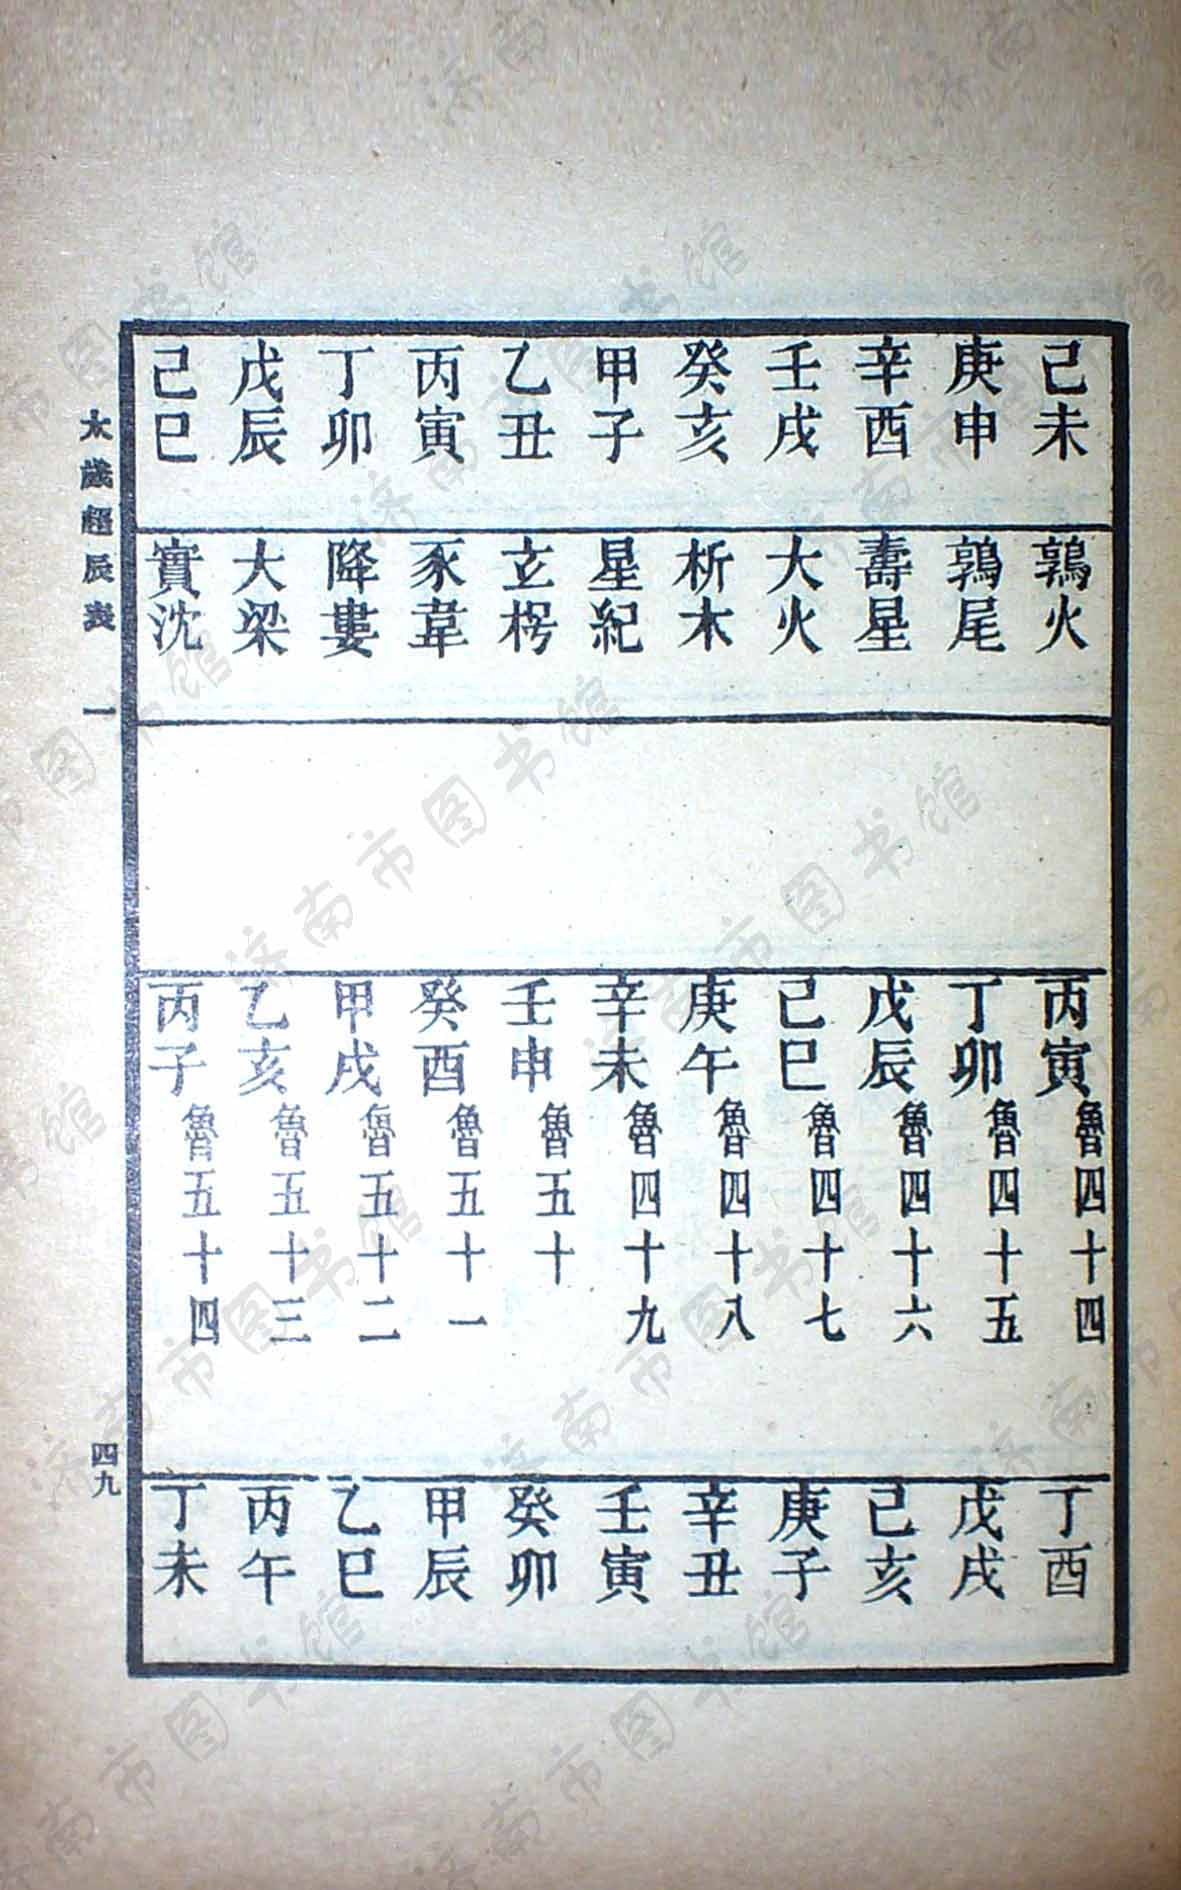 己未 鶉火 丙寅魯四十四 丁酉
庚申 鶉尾 丁卯魯四十五 戊戌
辛酉 壽星 戊辰魯四十六 己亥
壬戌 大火 己巳魯四十七 庚子
癸亥 析木 庚午魯四十八 辛丑
甲子 星紀 辛未魯四十九 壬寅
乙丑 玄枵 壬申魯五十 癸卯
丙寅 豕韋 癸酉魯五十一 甲辰
丁卯 降婁 甲戌魯五十二 乙巳
戊辰 大梁 乙亥魯五十三 丙午
己巳 實沈 丙子魯五十四 丁未
太歲超辰表 一 四九
济南市图书馆